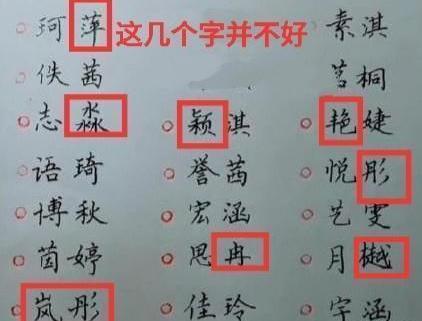 珂萍 这几个字并不好 素淇
佚茜 茗桐
志淼 颖淇 艳婕
语琦 誉茜 悦彤
博秋 宏涵 艺雯
茵婷 思冉 月樾
岚彤 佳玲 宇涵